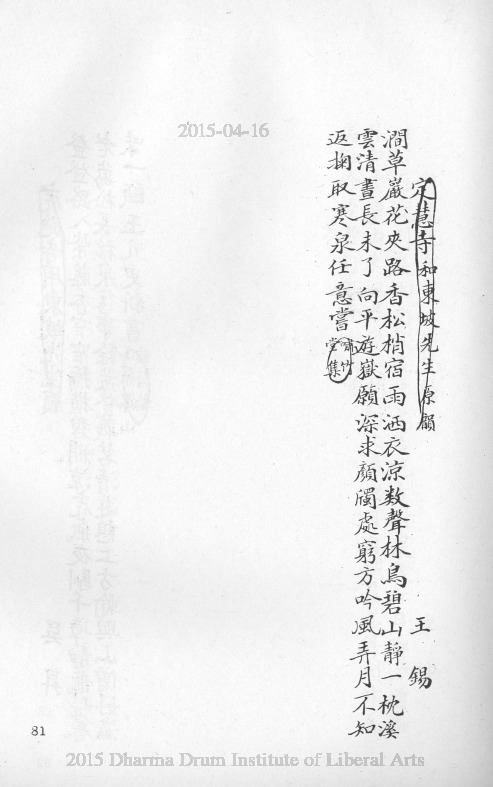 2015-04-16
定慧寺和東坡先生原韻 王錫
澗草巖花夾路香松梢宿雨洒衣涼数聲林鳥碧山靜一枕溪
雲清晝長未了向平遊嶽願深求顏觸處窮方吟風弄月不知
返掬取寒泉任意嘗嘯竹堂集
81
2015 Dharma Drum Institute of Liberal Arts